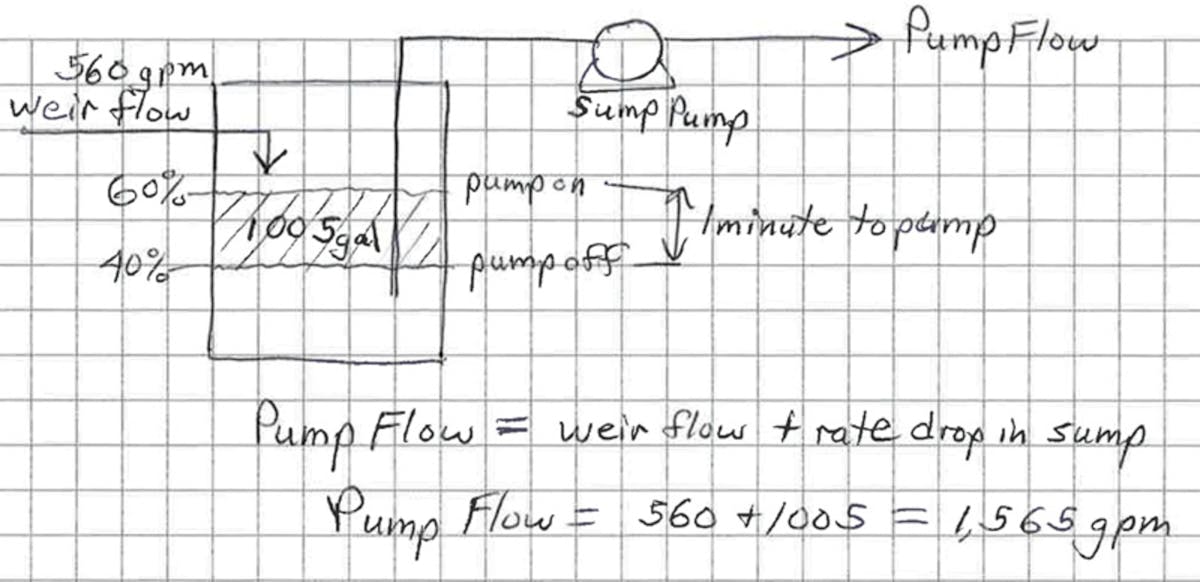 Pump Flow
560 gpm
weir flow
Sump Pump
60%
pump on
1005gal
1 minute to pump
40%
pump off
Pump Flow = weir flow + rate drop in sump
Pump Flow = 560 + 1005 = 1,565 gpm